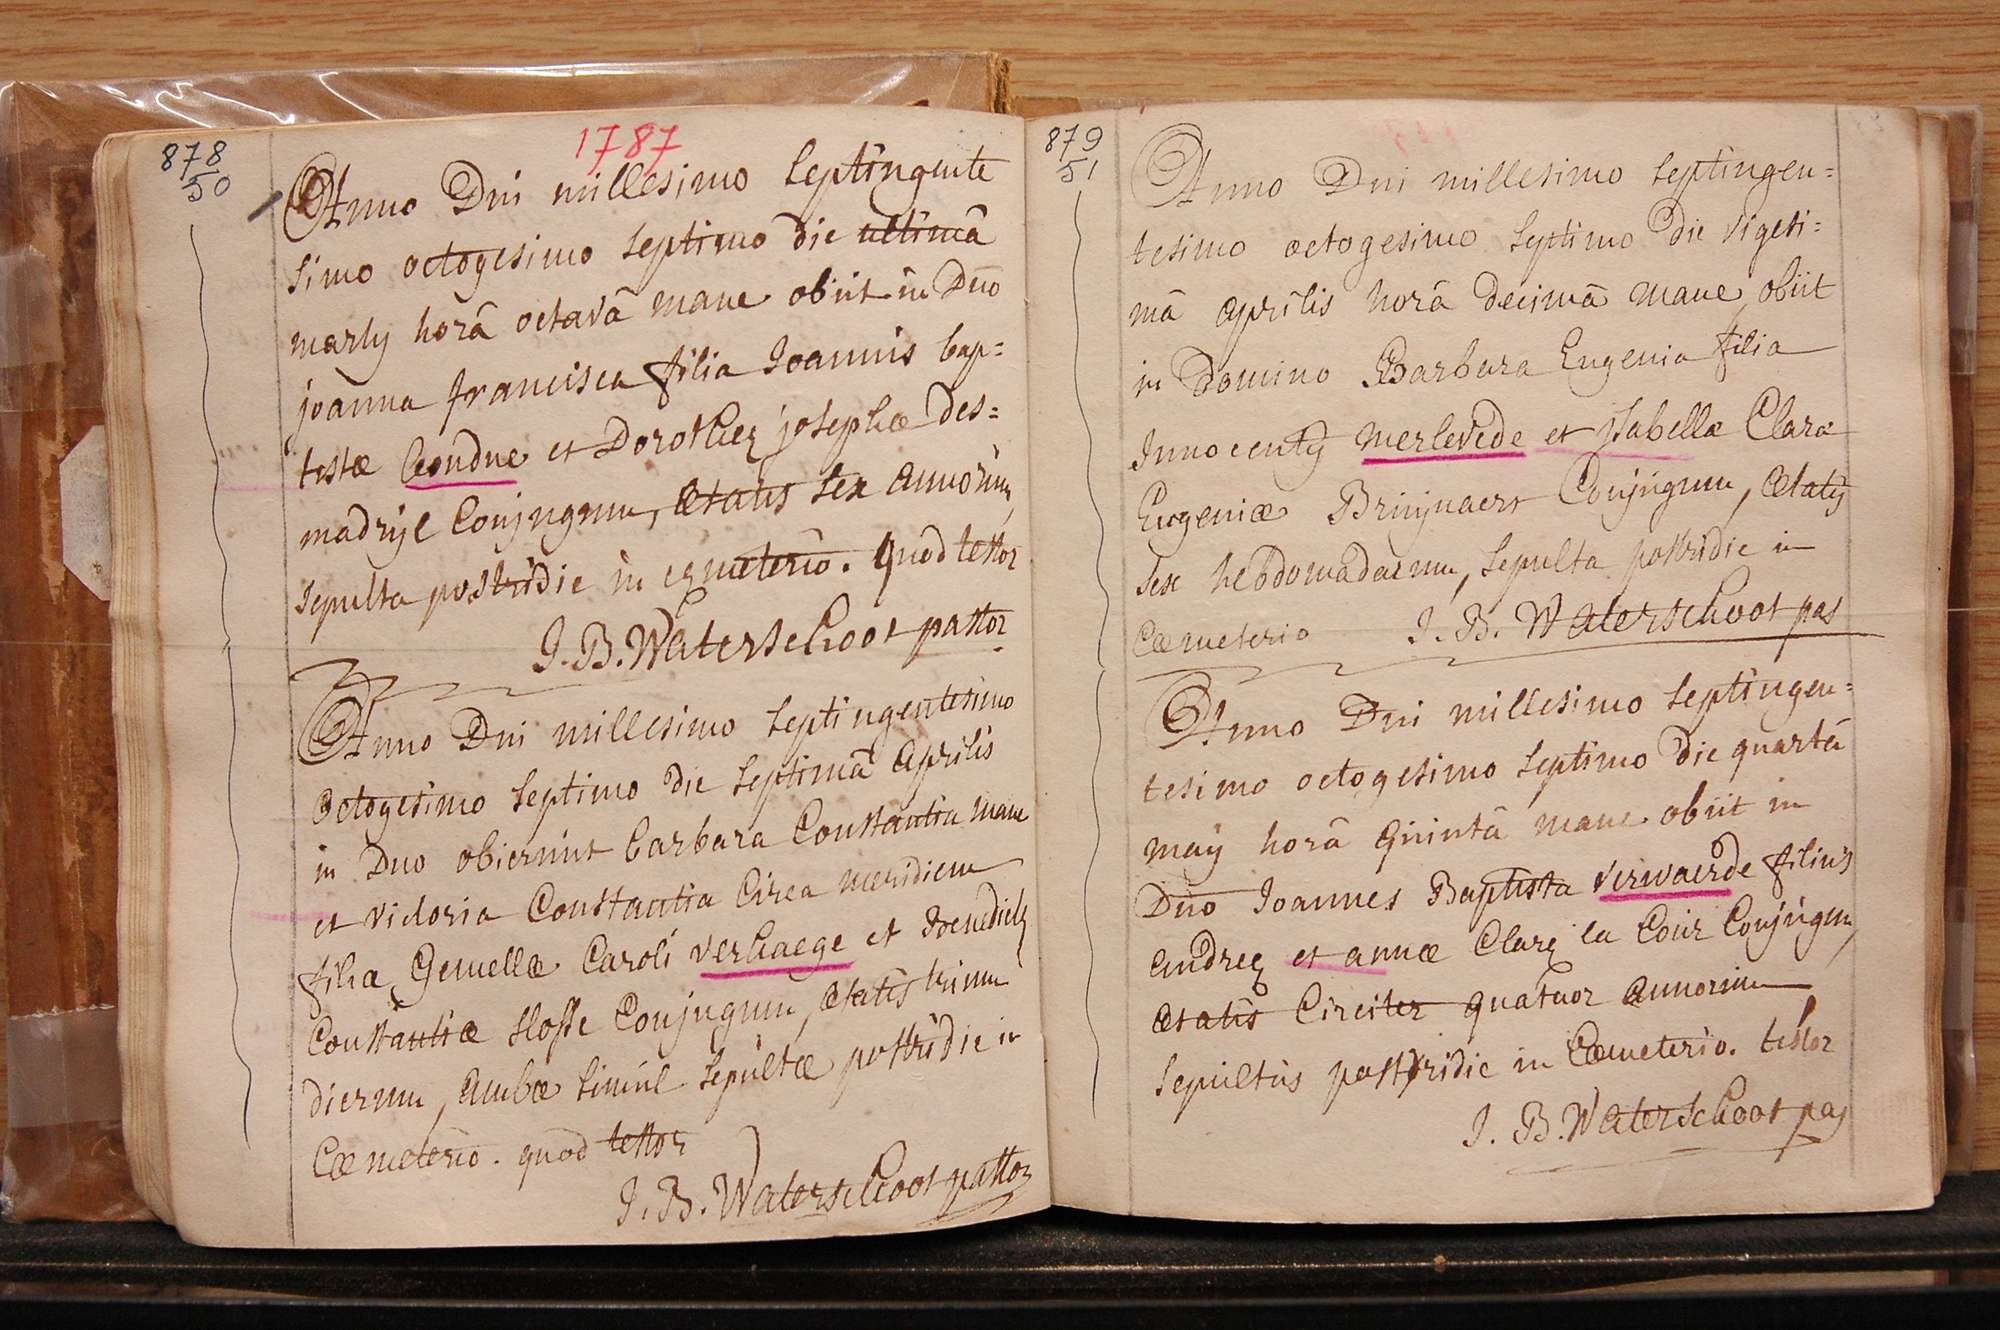 878
50
1787
Anno Dni millesimo septingente
simo octogesimo septimo die ultimâ
martÿ horâ octavâ mane obiit in Dno
joanna francisca filia Joannis bap=
tistæ et Dorotheę josephæ des=
madryl Conjugum, ætatis sex annorum,
sepulta postridie in cęmeterio. quod testor
J. B. Waterschoot pastor
Anno Dni millesimo septingentesimo
octogesimo septimo die septimâ aprilis
in Dno obierunt barbara Constantia mane
et victoria Constantia circa meridiem
filiæ Gemellæ Caroli verhaege et benedictę
Constantiæ slosse Conjugum, ætatis trium
dierum, ambæ simul sepultæ postridie in
Cæmeterio. quod testor
J. B. Waterschoot pastor
879
51
Anno Dni millesimo septingen=
tesimo octogesimo septimo die vigesi=
mâ aprilis horâ decimâ mane obiit
in Domino Barbara Eugenia filia
Innocentÿ merlevede et isabellæ Claræ
Eugeniæ Bruynaert Conjugum, ætatis
sex hebdomadarum, sepulta postridie in
Cæmeterio J. B. Waterschoot pas
Anno Dni millesimo septingen=
tesimo octogesimo septimo die quartâ
maÿ horâ quintâ mane obiit in
Dno Joannes Baptista verwaerde filius
andreę et annæ Clarę la Cour Conjugum,
ætatis Circiter quatuor annorum
sepultus postridie in Cæmeterio. testor
J. B. Waterschoot pas